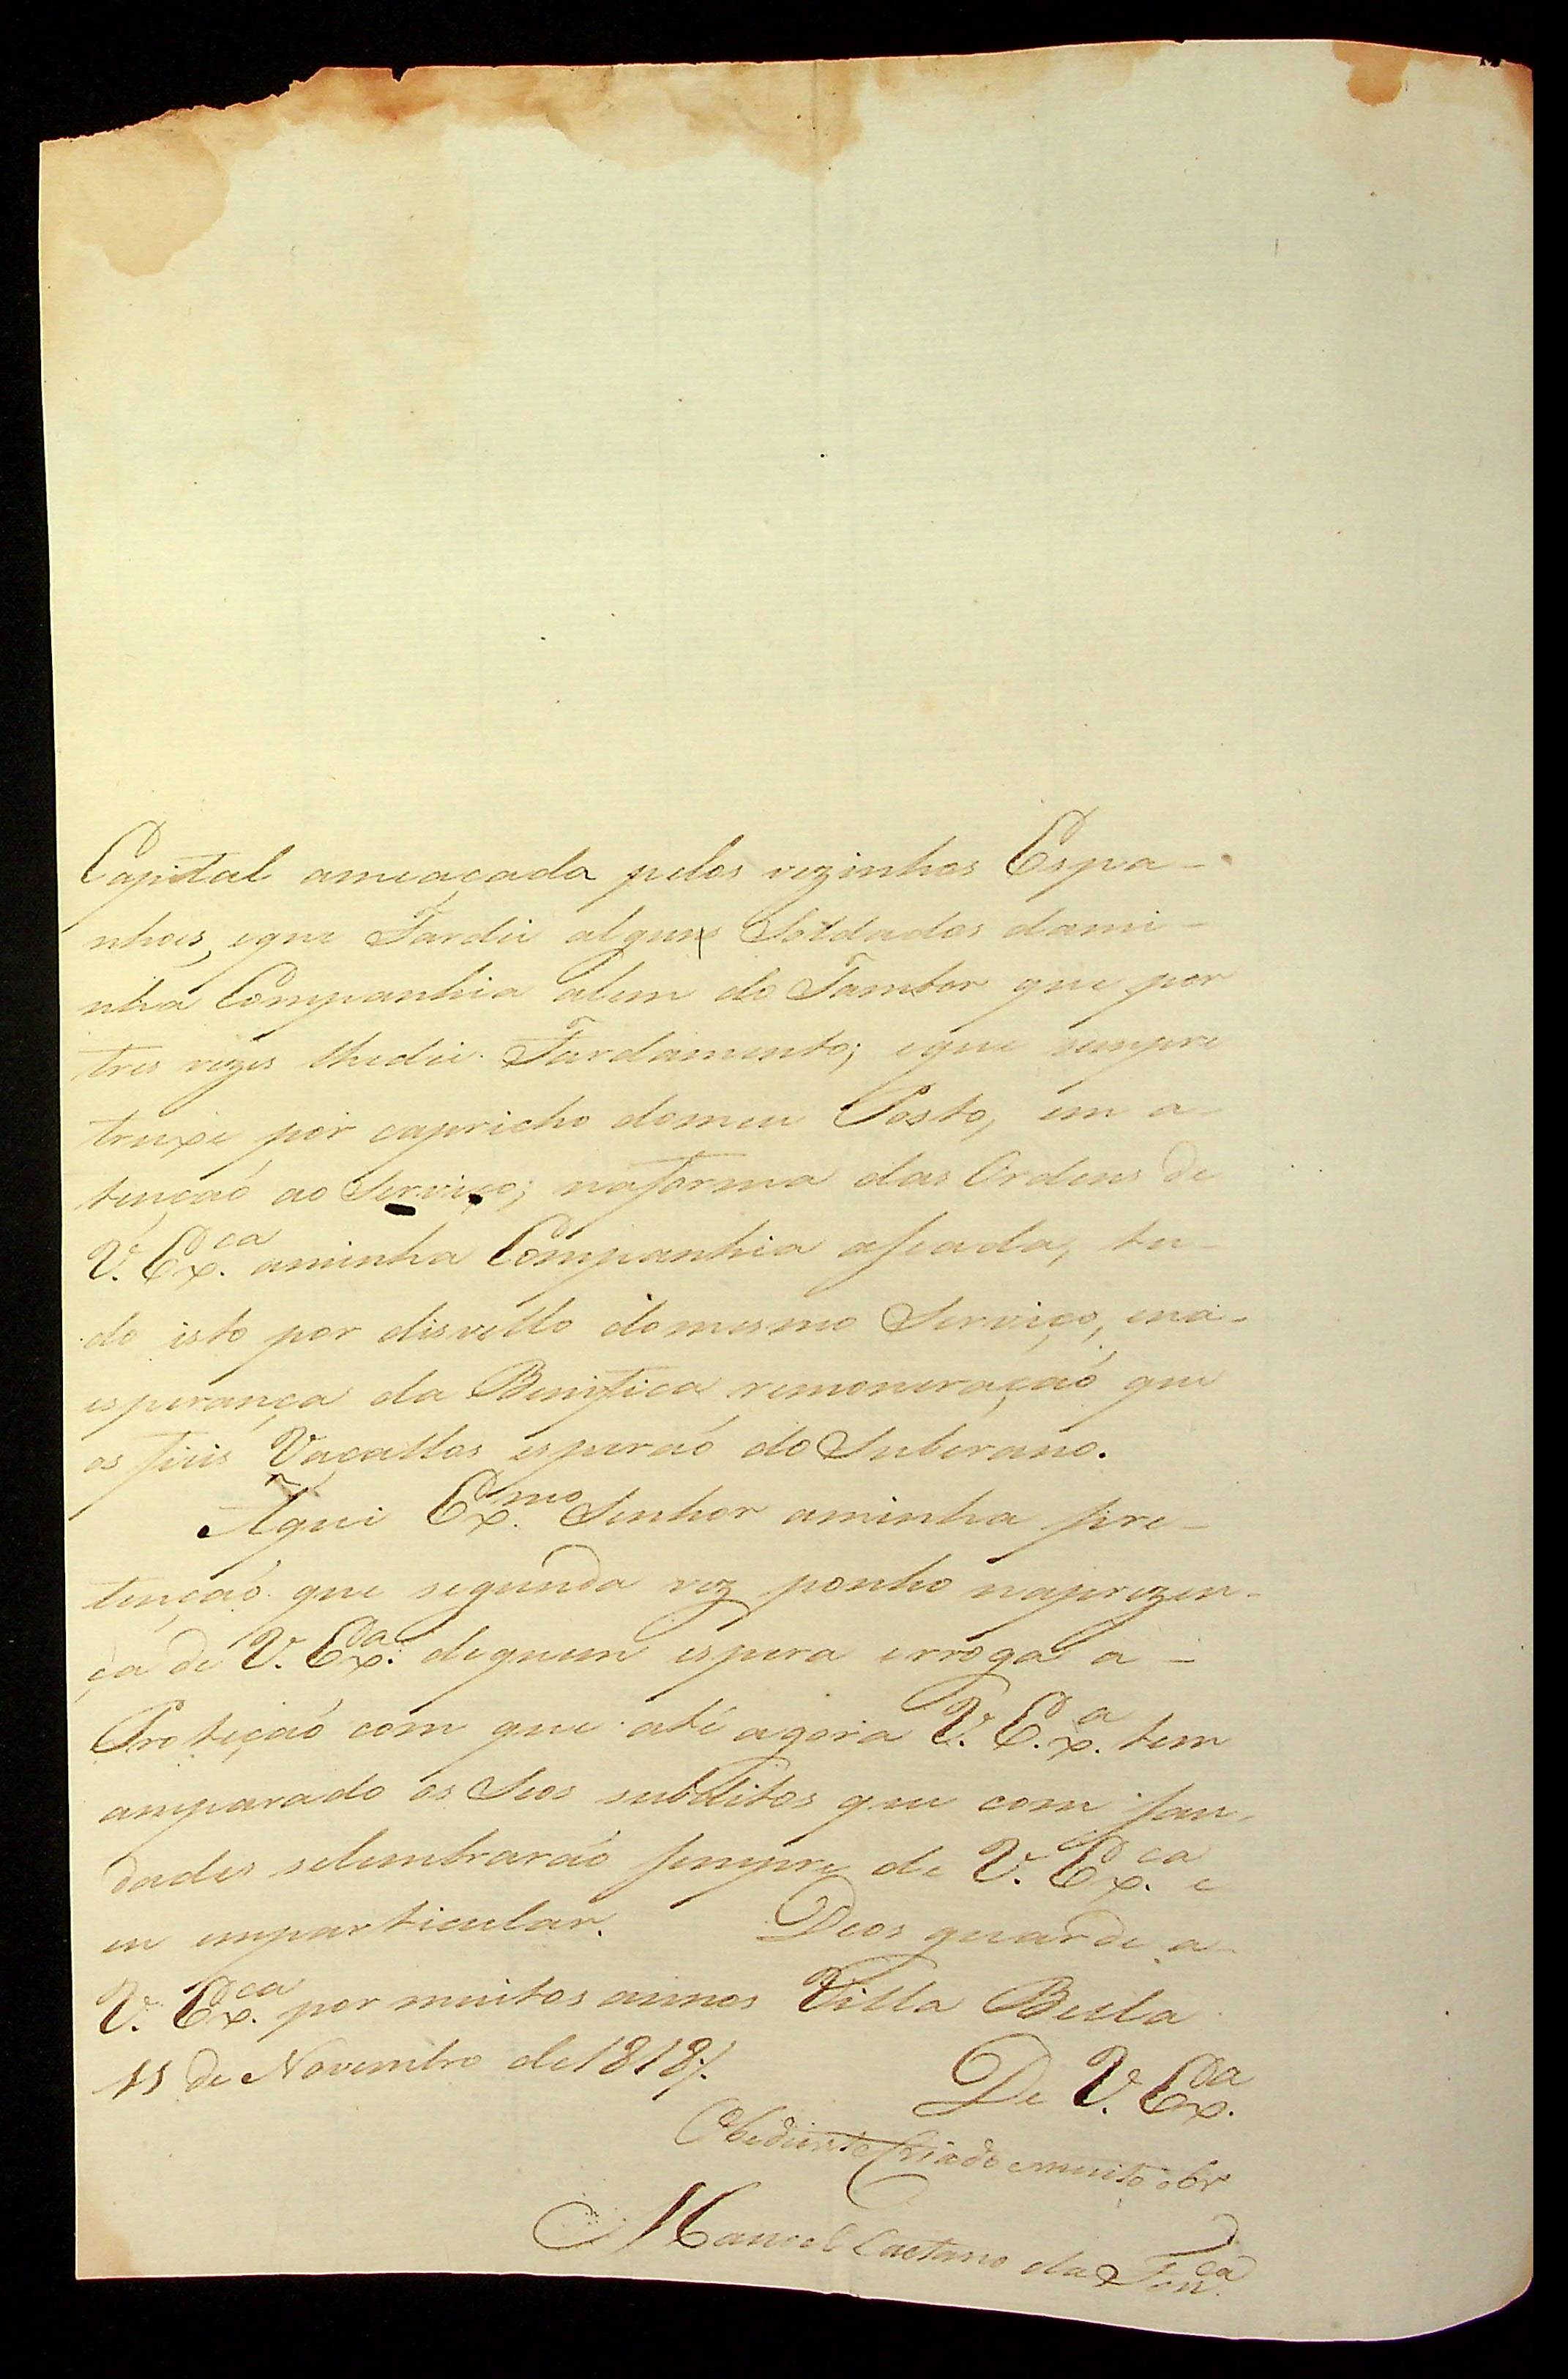 Capital ameaçada pelos vezinhos Espa-
nhoes, eque Fardei alguns Soldados dami-
nha Companhia alem do Tambor que por
tres vezes lhedei Fardamento; eque sempre
truxe por capricho domeu Posto, em a-
tençaó ao Serviço; naforma das Ordens de
V. Ex.ca aminha Companhia aseada, tu
do isto por disvello domesmo Serviço, ena-
esperança da Benifica remoneraçaó que
os fieis Vaçallos esperaó do Suberano.
Aqui Ex.mo Senhor aminha pre-
tençaó que segunda vez ponho naprezen-
ça de V. Ex.a dequem espera erroga a-
Proteçaó com que até agora V. Ex.a tem
amparado os Seos subditos que com sau-
dades selembraraó sempre de V. Ex.ca e
eu emparticular. Deos guarde a
V. Ex.ca por muitos annos Villa Bella
11 de Novembro de 1818/.
De V. Ex.a
Obediente Criado emuito obr
Manoel Caetano da Fon.ca